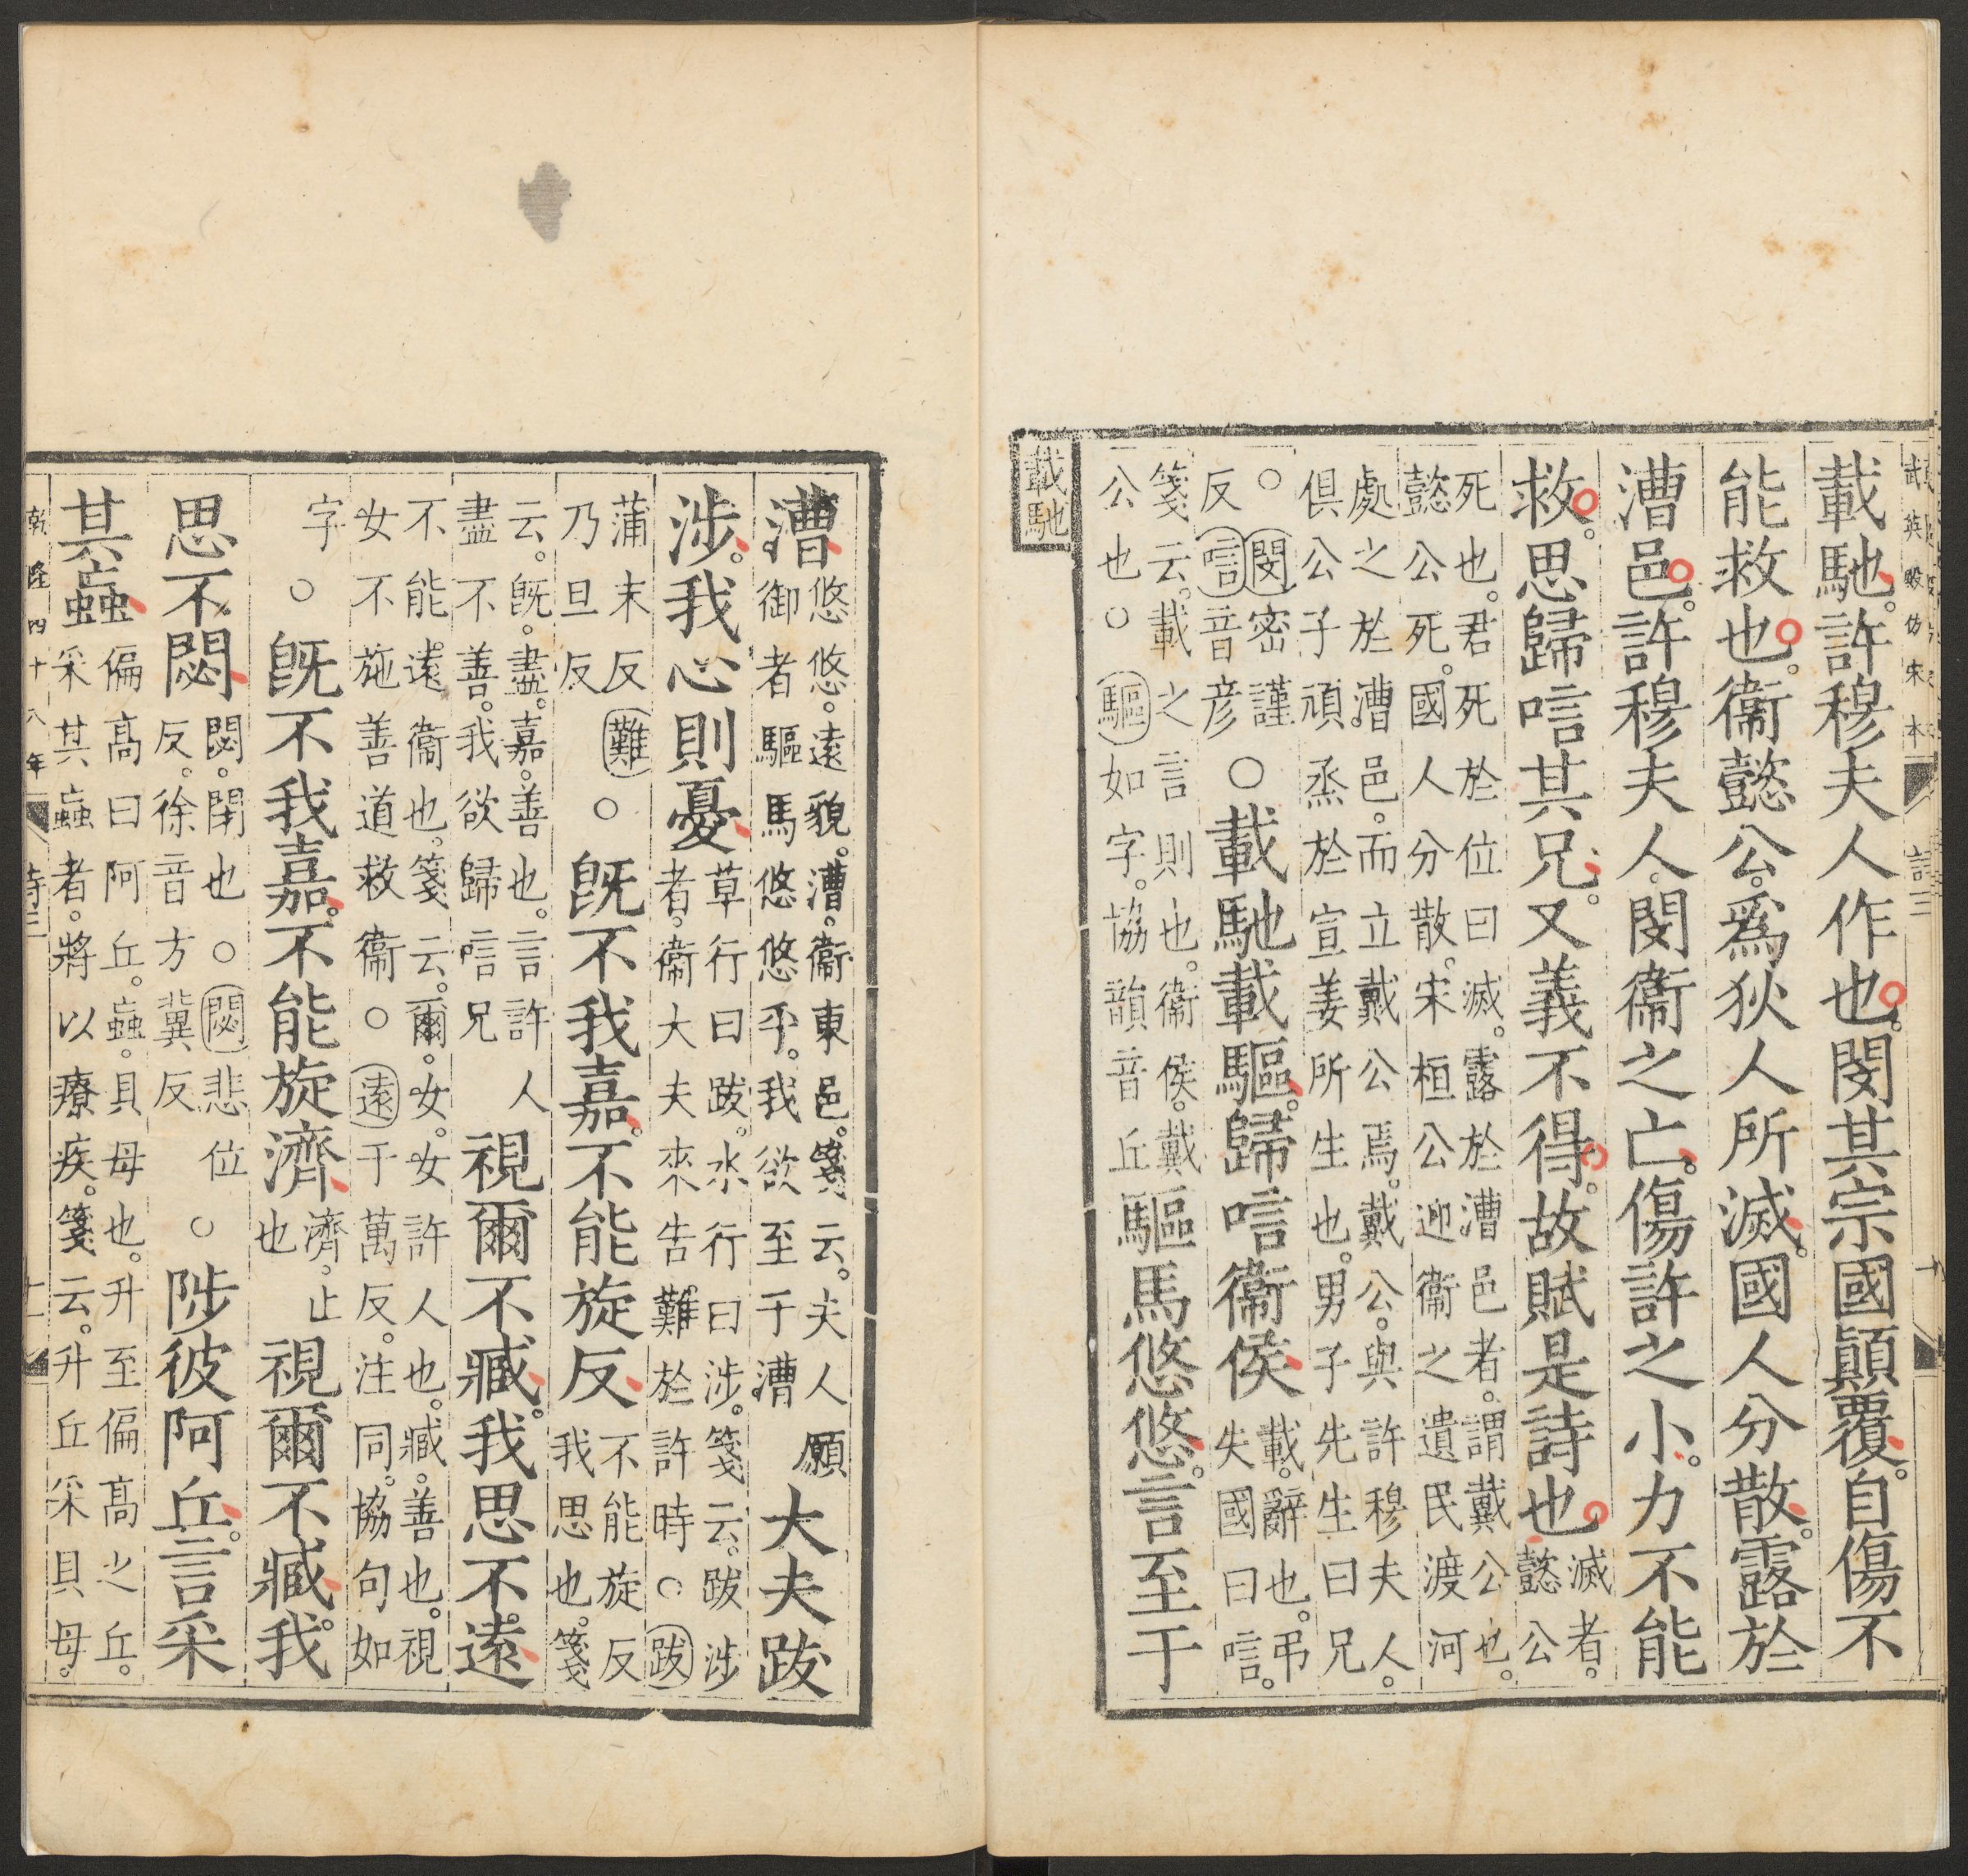 武英殿仿宋本
詩三
十
載馳許穆夫人作也閔其宗國顚覆自傷不
能救也衞懿公爲狄人所滅國人分散露於
漕邑許穆夫人閔衞之亡傷許之小力不能
救思歸唁其兄又義不得故賦是詩也滅者懿公
死也君死於位曰滅露於漕邑者謂戴公也
懿公死國人分散宋桓公迎衞之遺民渡河
處之於漕邑而立戴公焉戴公與許穆夫人
俱公子頑烝於宣姜所生也男子先生曰兄
○閔密謹反唁音彦○載馳載驅歸唁衞侯載辭也弔失國曰唁
箋云載之言則也衞侯戴公也○驅如字協韻音丘驅馬悠悠言至于
載馳
漕悠悠遠貌漕衞東邑箋云夫人願御者驅馬悠悠乎我欲至于漕大夫跋
涉我心則憂草行曰跋水行曰涉箋云跋涉者衞大夫來告難於許時○跋
蒲末反難乃旦反○旣不我嘉不能旋反不能旋反我思也箋
云旣盡嘉善也言許人盡不善我欲歸唁兄視爾不臧我思不遠
不能遠衞也箋云爾女女許人也臧善也視女不施善道救衞○遠于萬反注同協句如
字○旣不我嘉不能旋濟濟止也視爾不臧我
思不閟閟閉也○閟悲位反徐音方冀反○陟彼阿丘言采
其蝱偏高曰阿丘蝱貝母也升至偏高之丘采其蝱者將以療疾箋云升丘采貝母
乾隆四十八年
詩三
十一